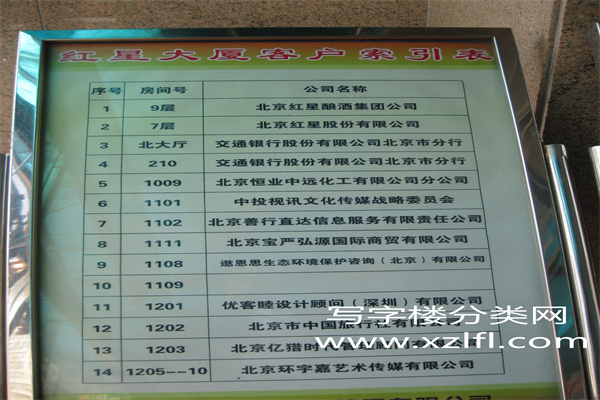 红星大厦客户索引表
序号 房间号 公司名称
1 9层 北京红星酿酒集团公司
2 7层 北京红星股份有限公司
3 北大厅 交通银行股份有限公司北京市分行
4 210 交通银行股份有限公司北京市分行
5 1009 北京恒业中远化工有限公司分公司
6 1101 中投视讯文化传媒战略委员会
7 1102 北京善行直达信息服务有限责任公司
8 1111 北京宝严弘源国际商贸有限公司
9 1108 邈恩思生态环境保护咨询（北京）有限公司
10 1109
11 1201 优客睦设计顾问（深圳）有限公司
12 1202 北京市中国旅行社有限公司
13 1203 北京亿猎时代 有限公司
14 1205--10 北京环宇嘉艺术传媒有限公司
写字楼分类网
www.xzlfl.com